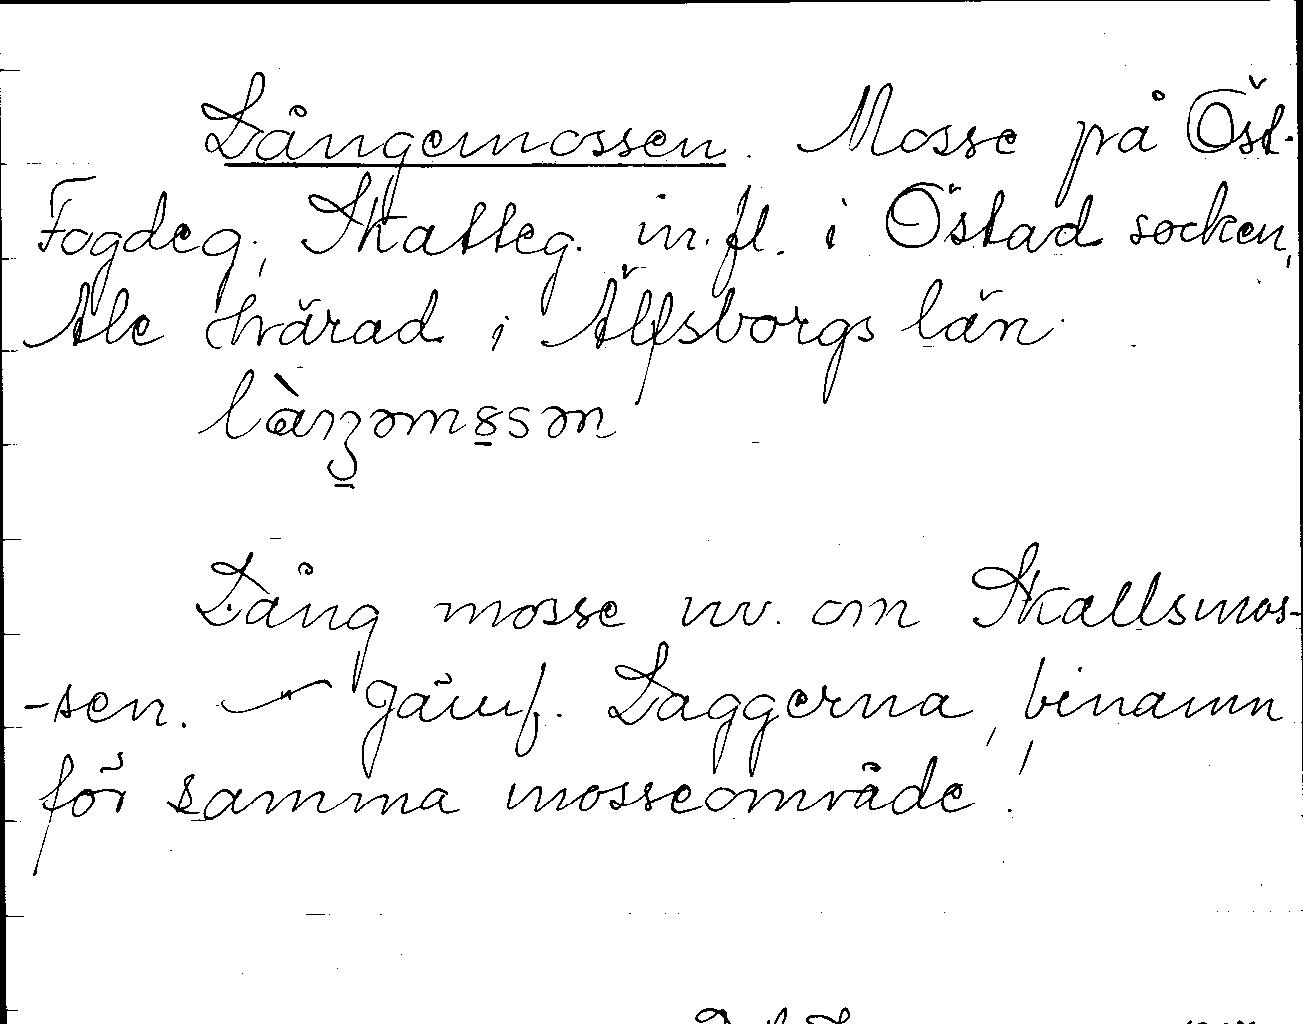 Långemossen. Mosse på Öst-
Fogdeg, Skatteg. m. fl. i Östad socken,
Ale härad i Älfsborgs län.
làŋəmossən
Lång mosse nv. om Skallsmos-
-sen. — Jämf. Laggerna, binamn
för samma mosseområde!